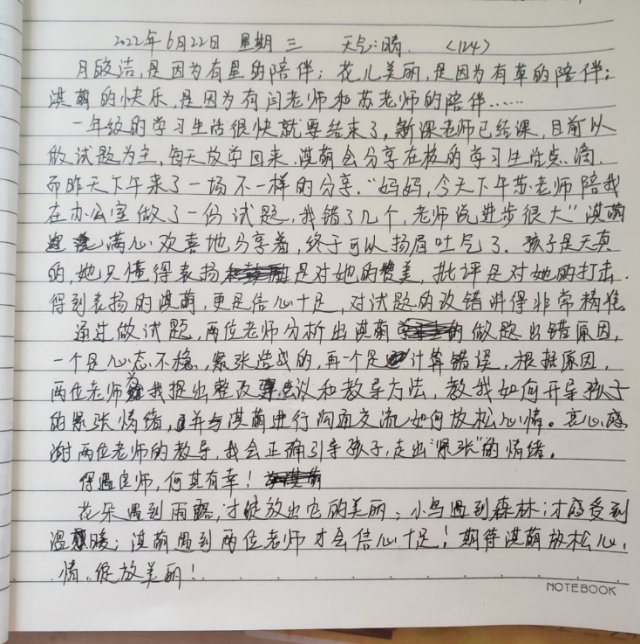 2022年6月22日 星期三 天气:晴. <124>
月皎洁,是因为有星的陪伴;花儿美丽,是因为有草的陪伴;
淇萌的快乐,是因为有闫老师和苏老师的陪伴……
一年级的学习生活很快就要结束了,新课老师已结课,目前以
做试题为主,每天放学回来,淇萌会分享在校的学习生活点滴,
而昨天下午来了一场不一样的分享,“妈妈,今天下午苏老师陪我
在办公室做了一份试题,我错了几个,老师说进步很大”淇萌
满心欢喜地分享着,终于可以扬眉吐气了.孩子是天真
的,她只懂得表扬是对她的赞美,批评是对她的打击.
得到表扬的淇萌,更是信心十足,对试题的改错讲得非常精准
通过做试题,两位老师分析出淇萌做题出错原因,
一个是心态不稳,紧张造成的,再一个是计算错误,根据原因,
两位老师为我提出整改意见以和教导方法,教我如何开导孩子
的紧张情绪,并与淇萌进行沟通交流如何放松心情。衷心感
谢两位老师的教导,我会正确引导孩子,走出“紧张”的情绪。
得遇良师,何其有幸!
花朵遇到雨露,才绽放出它的美丽;小鸟遇到森林;才感受到
温暖;淇萌遇到两位老师才会信心十足!期待淇萌放松心
情,绽放美丽!
NOTEBOOK